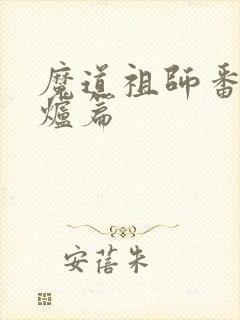 魔道祖師番
爐篇
安蓓朱